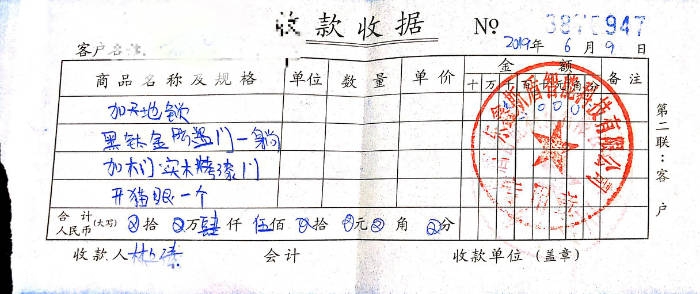 收款收据 № 38 947
客户名称 2019年6月9日
商品名称及规格 单位 数量 单价 金额 备注
十万千百十元角份
加天地锁
黑钛金 门一 000
加木门实木烤漆门
开猫眼一个
合计人民币(大写) ⊗拾⊗万肆仟伍佰⊗拾⊗元⊗角⊗分
收款人 林 会计 收款单位(盖章)
第二联:客户
盾智能科技有限公司